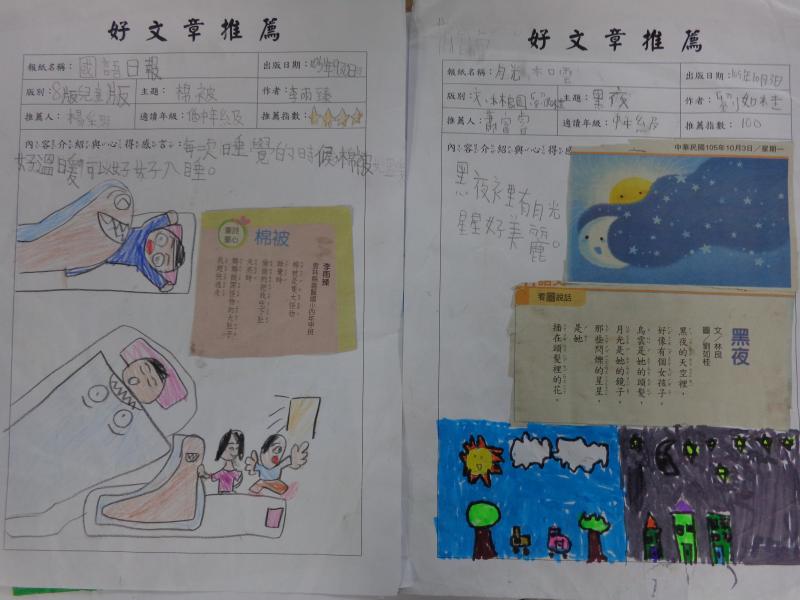 好文章推薦
報紙名稱：國語日報
出版日期：
版別：8版兒童版
主題：棉被
作者：李雨臻
推薦人：楊
適讀年級：中年級
推薦指數：☆☆☆☆
內容介紹與心得感言：每次睡覺的時候棉被
好溫暖可以好好入睡。
童詩童心
棉被
李雨臻
棉被是隻大怪物
睡覺時
偷偷的把我吞下肚
天亮時
我趕快逃走
好文章推薦
報紙名稱：月光
出版日期：105年10月3日
版別：
主題：黑夜
作者：劉如桂
推薦人：
適讀年級：中年級
推薦指數：100
內容介紹與心得感
黑夜裡有月光
星星好美麗。
中華民國105年10月3日／星期一
看圖說話
黑夜
文／林良
圖／劉如桂
黑夜的天空裡，
好像有個女孩子，
烏雲是她的頭髮，
月光是她的鏡子，
那些閃爍的星星，
是她
插在頭髮裡的花。